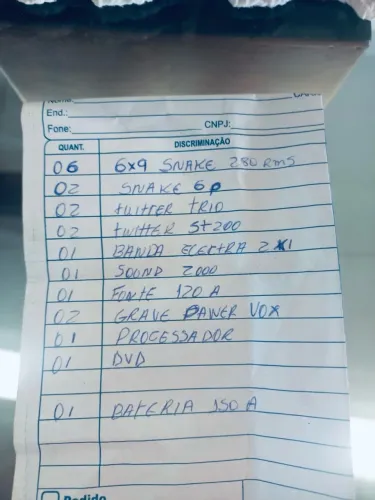 Nome:
End.:
Fone: CNPJ:
QUANT. DISCRIMINAÇÃO
06 6x9 SNAKE 280 RMS
02 SNAKE 6P
02 tWITTER TRIO
02 tWITTER St200
01 BANDA ELEKTRA 2X1
01 SOUND 2000
01 FONTE 120 A
02 GRAVE PAWER VOX
01 PROCESSADOR
01 DVD
01 BATERIA 150 A
Pedido